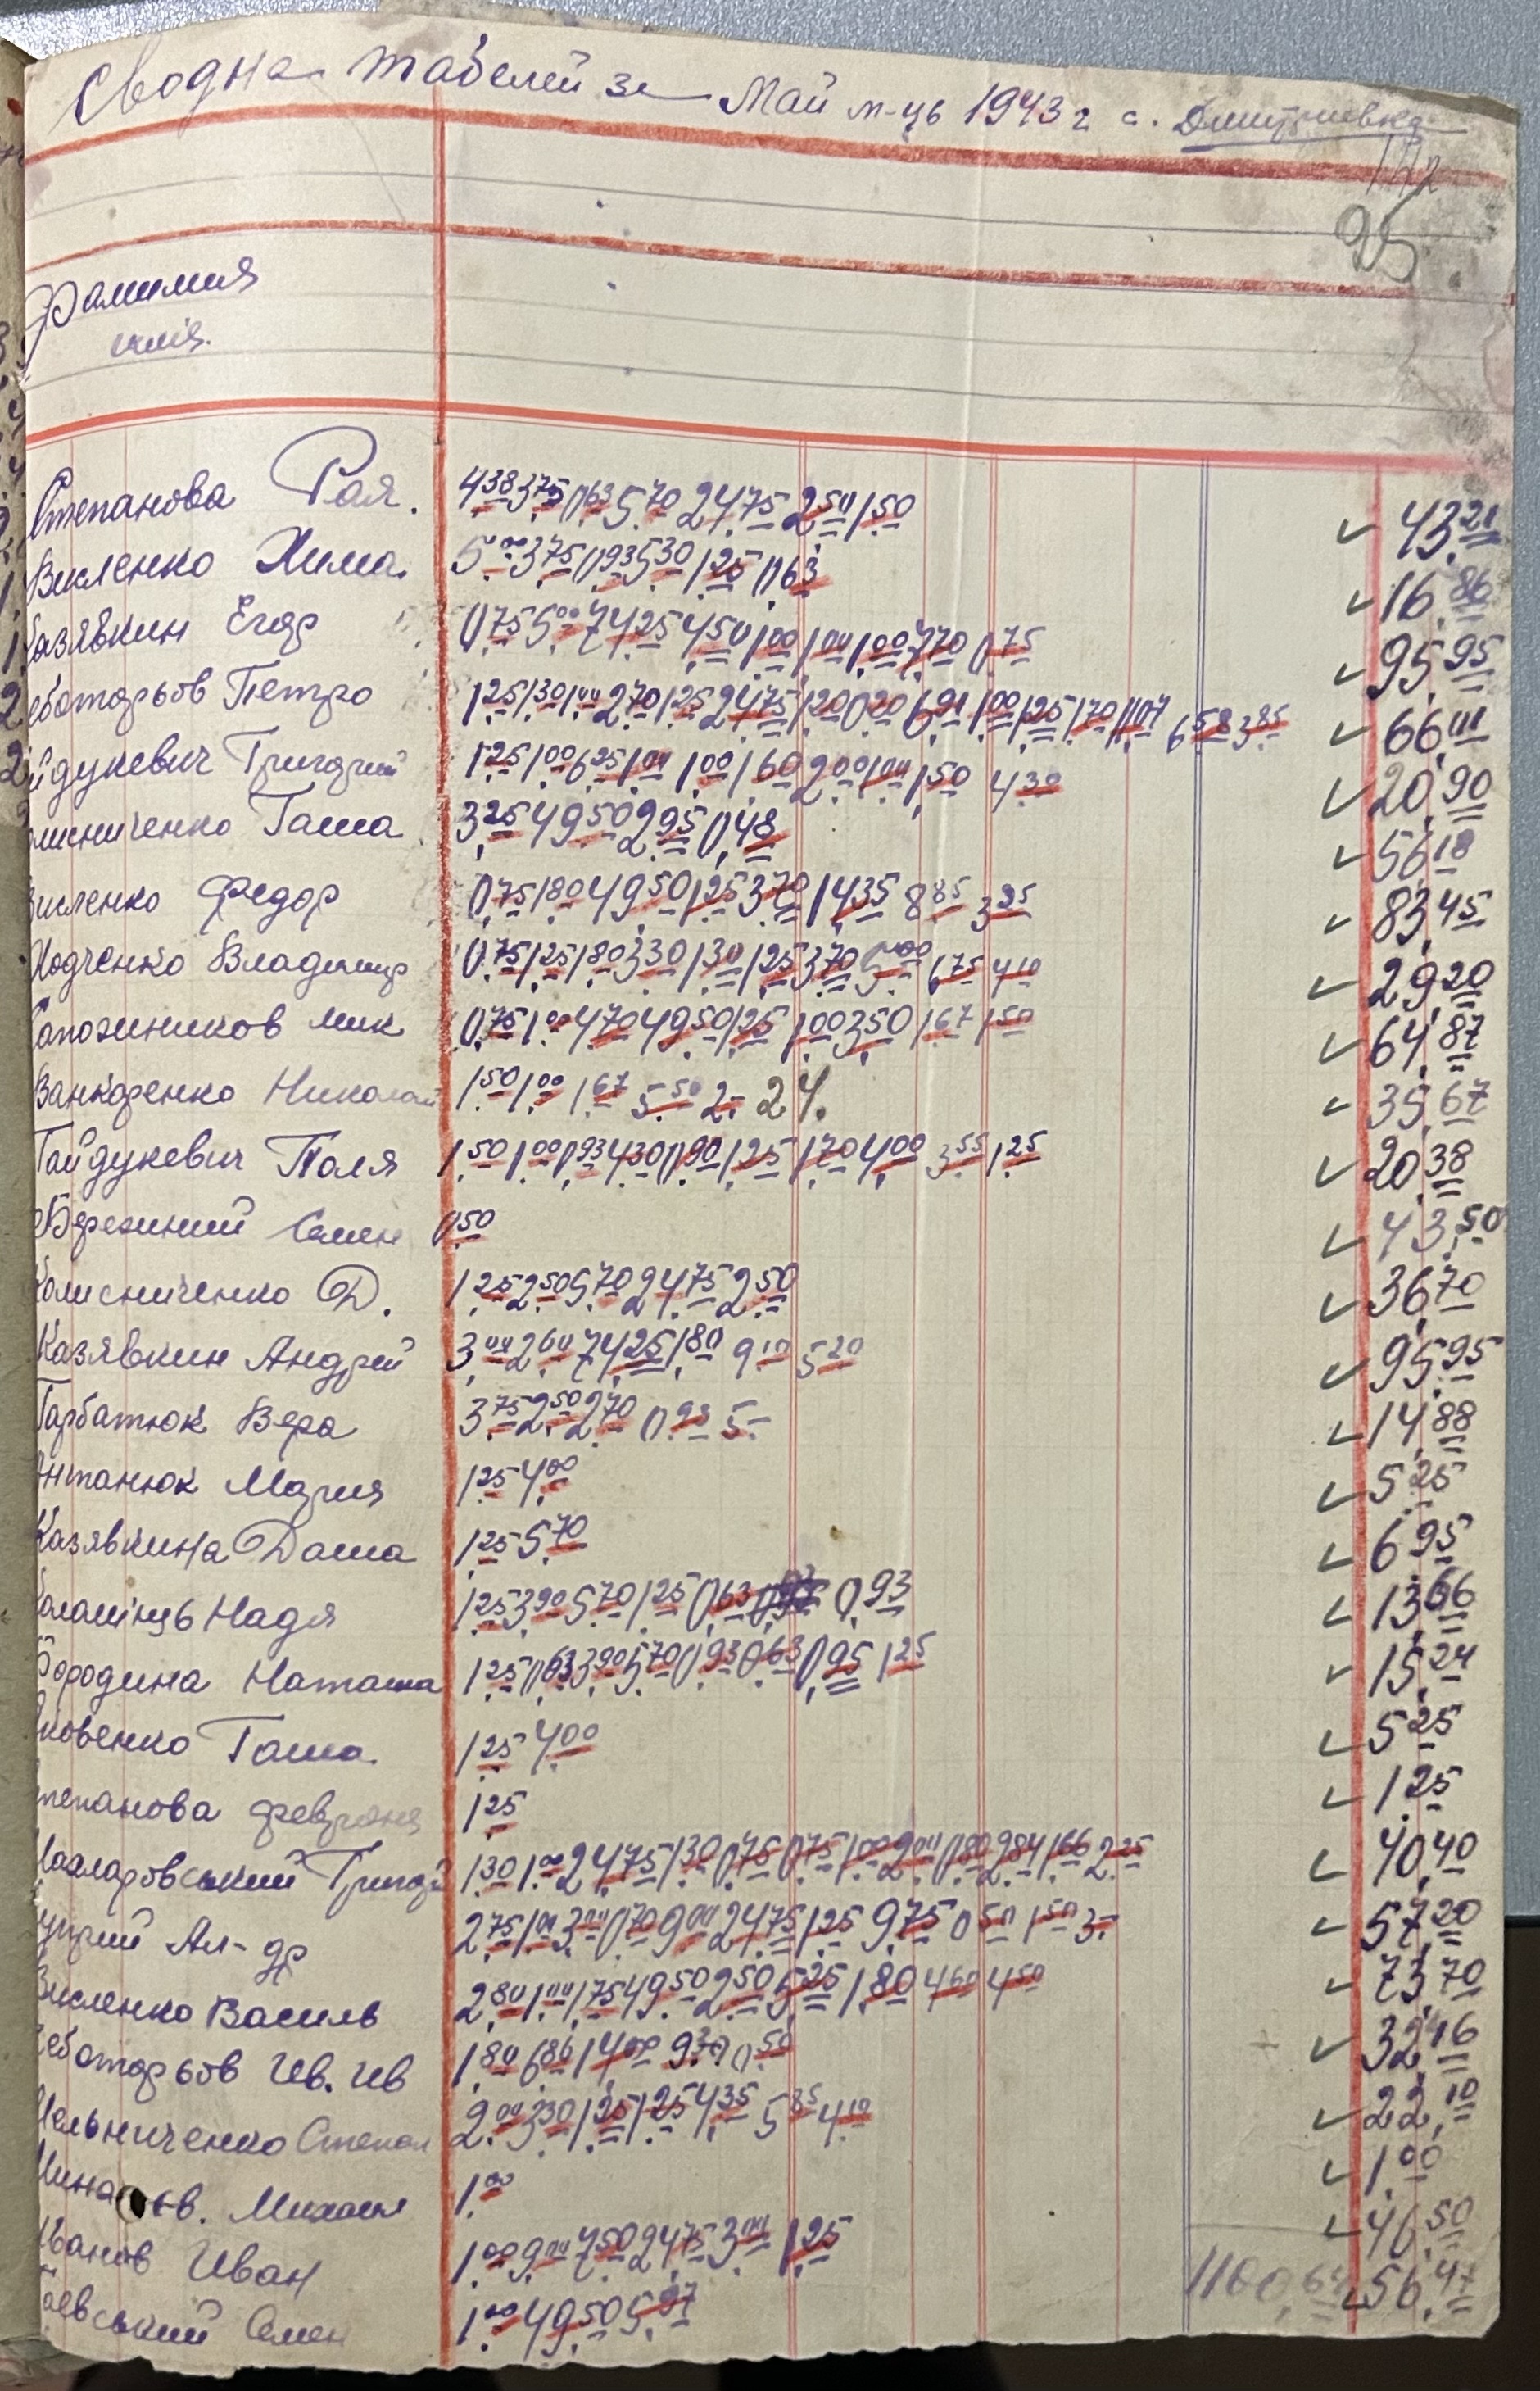 Сводна табелей за Май м-ць 1943 г с. Дмитриевка
95
Фамилия
имія.
Степанова Рая. 4,38 3,75 0,63 5,70 24,75 2,50 1,50 43,21
Висленко Хима. 5,00 3,75 0,93 5,30 1,25 0,63 16,86
Казявкин Егор 0,75 5,00 74,25 4,50 1,00 1,00 1,00 7,70 0,75 95,95
еботарьов Петро 1,25 1,30 1,00 2,70 1,25 24,75 1,20 0,20 6,91 1,00 1,25 1,70 11,07 6,58 3,85 66,01
йдукевич Григорий 1,25 1,00 6,25 1,00 1,00 1,60 2,00 1,00 1,50 4,30 20,90
лисниченко Гаша 3,25 49,50 2,95 0,48 56,18
висленко Федор 0,75 1,80 49,50 1,25 3,70 14,35 8,85 3,25 83,45
Ходченко Владимир 0,75 1,25 1,80 3,30 1,30 1,25 3,70 5,00 6,75 4,10 29,20
Сапожников Мик 0,75 1,00 4,70 49,50 1,25 1,00 3,50 1,67 1,50 64,87
Николай 1,50 1,00 1,67 5,50 2,- 24. 35,67
Гайдукевич Поля 1,50 1,00 0,93 4,30 0,90 1,25 1,70 4,00 3,55 1,25 20,38
Семен 0,50 43,50
Колисниченко Д. 1,25 2,50 5,70 24,75 2,50 36,70
Казявкин Андрей 3,00 2,60 74,25 1,80 9,10 5,20 95,95
Гарбатюк Вера 3,75 2,50 2,70 0,93 5,- 14,88
Антанюк Мария 1,25 4,00 5,25
Казявкина Даша 1,25 5,70 6,95
Надя 1,25 3,90 5,70 1,25 0,63 0,93 13,66
Бородина Наташа 1,25 0,63 3,90 5,70 0,93 0,63 0,95 1,25 15,24
ковенко Гаша. 1,25 4,00 5,25
тепанова Февроня 1,25 1,25
1,30 1,00 24,75 1,30 0,75 0,75 1,00 2,00 0,80 2,84 1,66 2,25 40,40
Ал-др 2,75 1,00 3,00 0,70 9,00 24,75 1,25 9,75 0,50 1,50 3,- 57,20
Висленко Василь 2,80 1,00 1,75 49,50 2,50 5,25 1,80 4,60 4,50 73,70
еботарьов Ив. Ив 1,80 6,86 14,00 9,30 0,50 32,46
Мельниченко Степан 2,00 3,30 1,25 1,25 4,35 5,85 4,10 22,10
Михаил 1,00 1,00
Иванов Иван 1,00 9,00 7,50 24,75 3,00 1,25 46,50
аевський Семен 1,00 49,50 5,97 1160,64 56,47